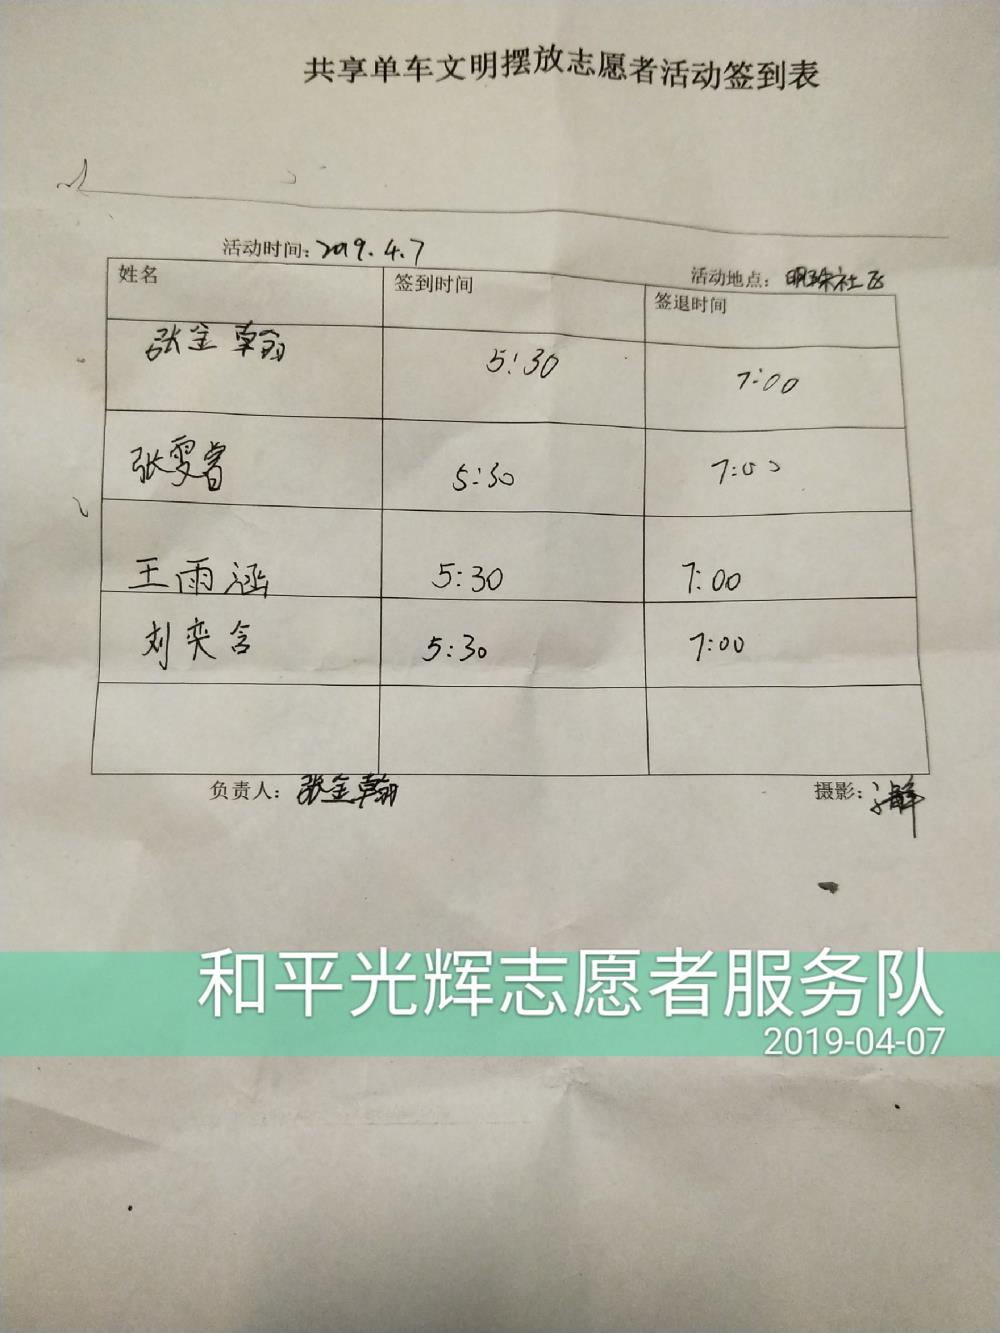 共享单车文明摆放志愿者活动签到表
活动时间：2019.4.7
活动地点：明珠社区
姓名 签到时间 签退时间
张金翰 5:30 7:00
张雯睿 5:30 7:00
王雨涵 5:30 7:00
刘奕含 5:30 7:00
负责人：张金翰
摄影：
和平光辉志愿者服务队
2019-04-07